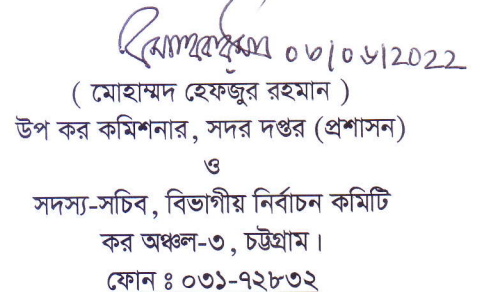 ০৬/০৬/2022
( মোহাম্মদ হেফজুর রহমান )
উপ কর কমিশনার, সদর দপ্তর (প্রশাসন)
ও
সদস্য-সচিব, বিভাগীয় নির্বাচন কমিটি
কর অঞ্চল-৩, চট্টগ্রাম।
ফোন ঃ ০৩১-৭২৮৩২